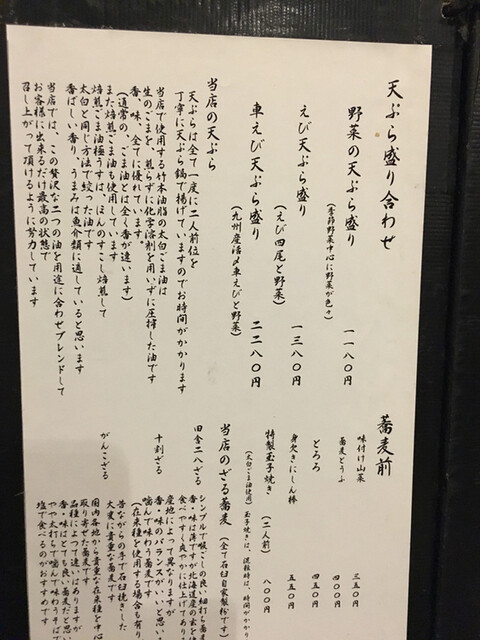 天ぷら盛り合わせ
野菜の天ぷら盛り
(季節野菜中心に野菜が色々)
一一八〇円
えび天ぷら盛り
(えび四尾と野菜)
一三八〇円
車えび天ぷら盛り
(九州産活〆車えびと野菜)
二二八〇円
当店の天ぷら
天ぷらは全て一度に二人前位を
丁寧に天ぷら鍋で揚げていますのでお時間がかかります
当店で使用する竹本油脂の太白ごま油は
生のごまを、煎らずに化学溶剤を用いずに圧搾した油です
香、味、全てに優れています。
(通常の、ごま油とは全く香が違います)
また焙煎ごま油も使用しています
焙煎ごま油極うすは、ほんのすこし焙煎して
太白と同じ方法で絞った油です
香ばしい香り、うまみは魚介類に適していると思います
当店では、この贅沢な二つの油を用途に合わせブレンドして
お客様に出来るだけ最高の状態で
召し上がって頂けるように努力しています
蕎麦前
味付け山菜
三五〇円
蕎麦どうふ
四〇〇円
とろろ
四五〇円
身欠きにしん棒
五五〇円
特製玉子焼き
(二人前)
八〇〇円
(太白ごま油使用)玉子焼きは、混雑時は、時間がかかり
当店のざる蕎麦
(全て石臼自家製粉です)
田舎二八ざる
シンプルで喉ごしの良い細打ち蕎麦
香・味は薄いが北海道産の玄を
食べやすく爽やかに仕上げており
十割ざる
産地によって異なりますが
香・味のバランスがいいと思い
噛んで味わう蕎麦です
(在来種を使用する場合も有り
がんこざる
昔ながらの手で石臼挽きした
大変に貴重な蕎麦です
国内各地から貴重な在来種を中心
取り寄せた蕎麦です
品種によって違いはありますが
香・味はとても良い蕎麦だと思い
やや太打ちで噛んで味わうそば
塩で食べるのがおすすめです